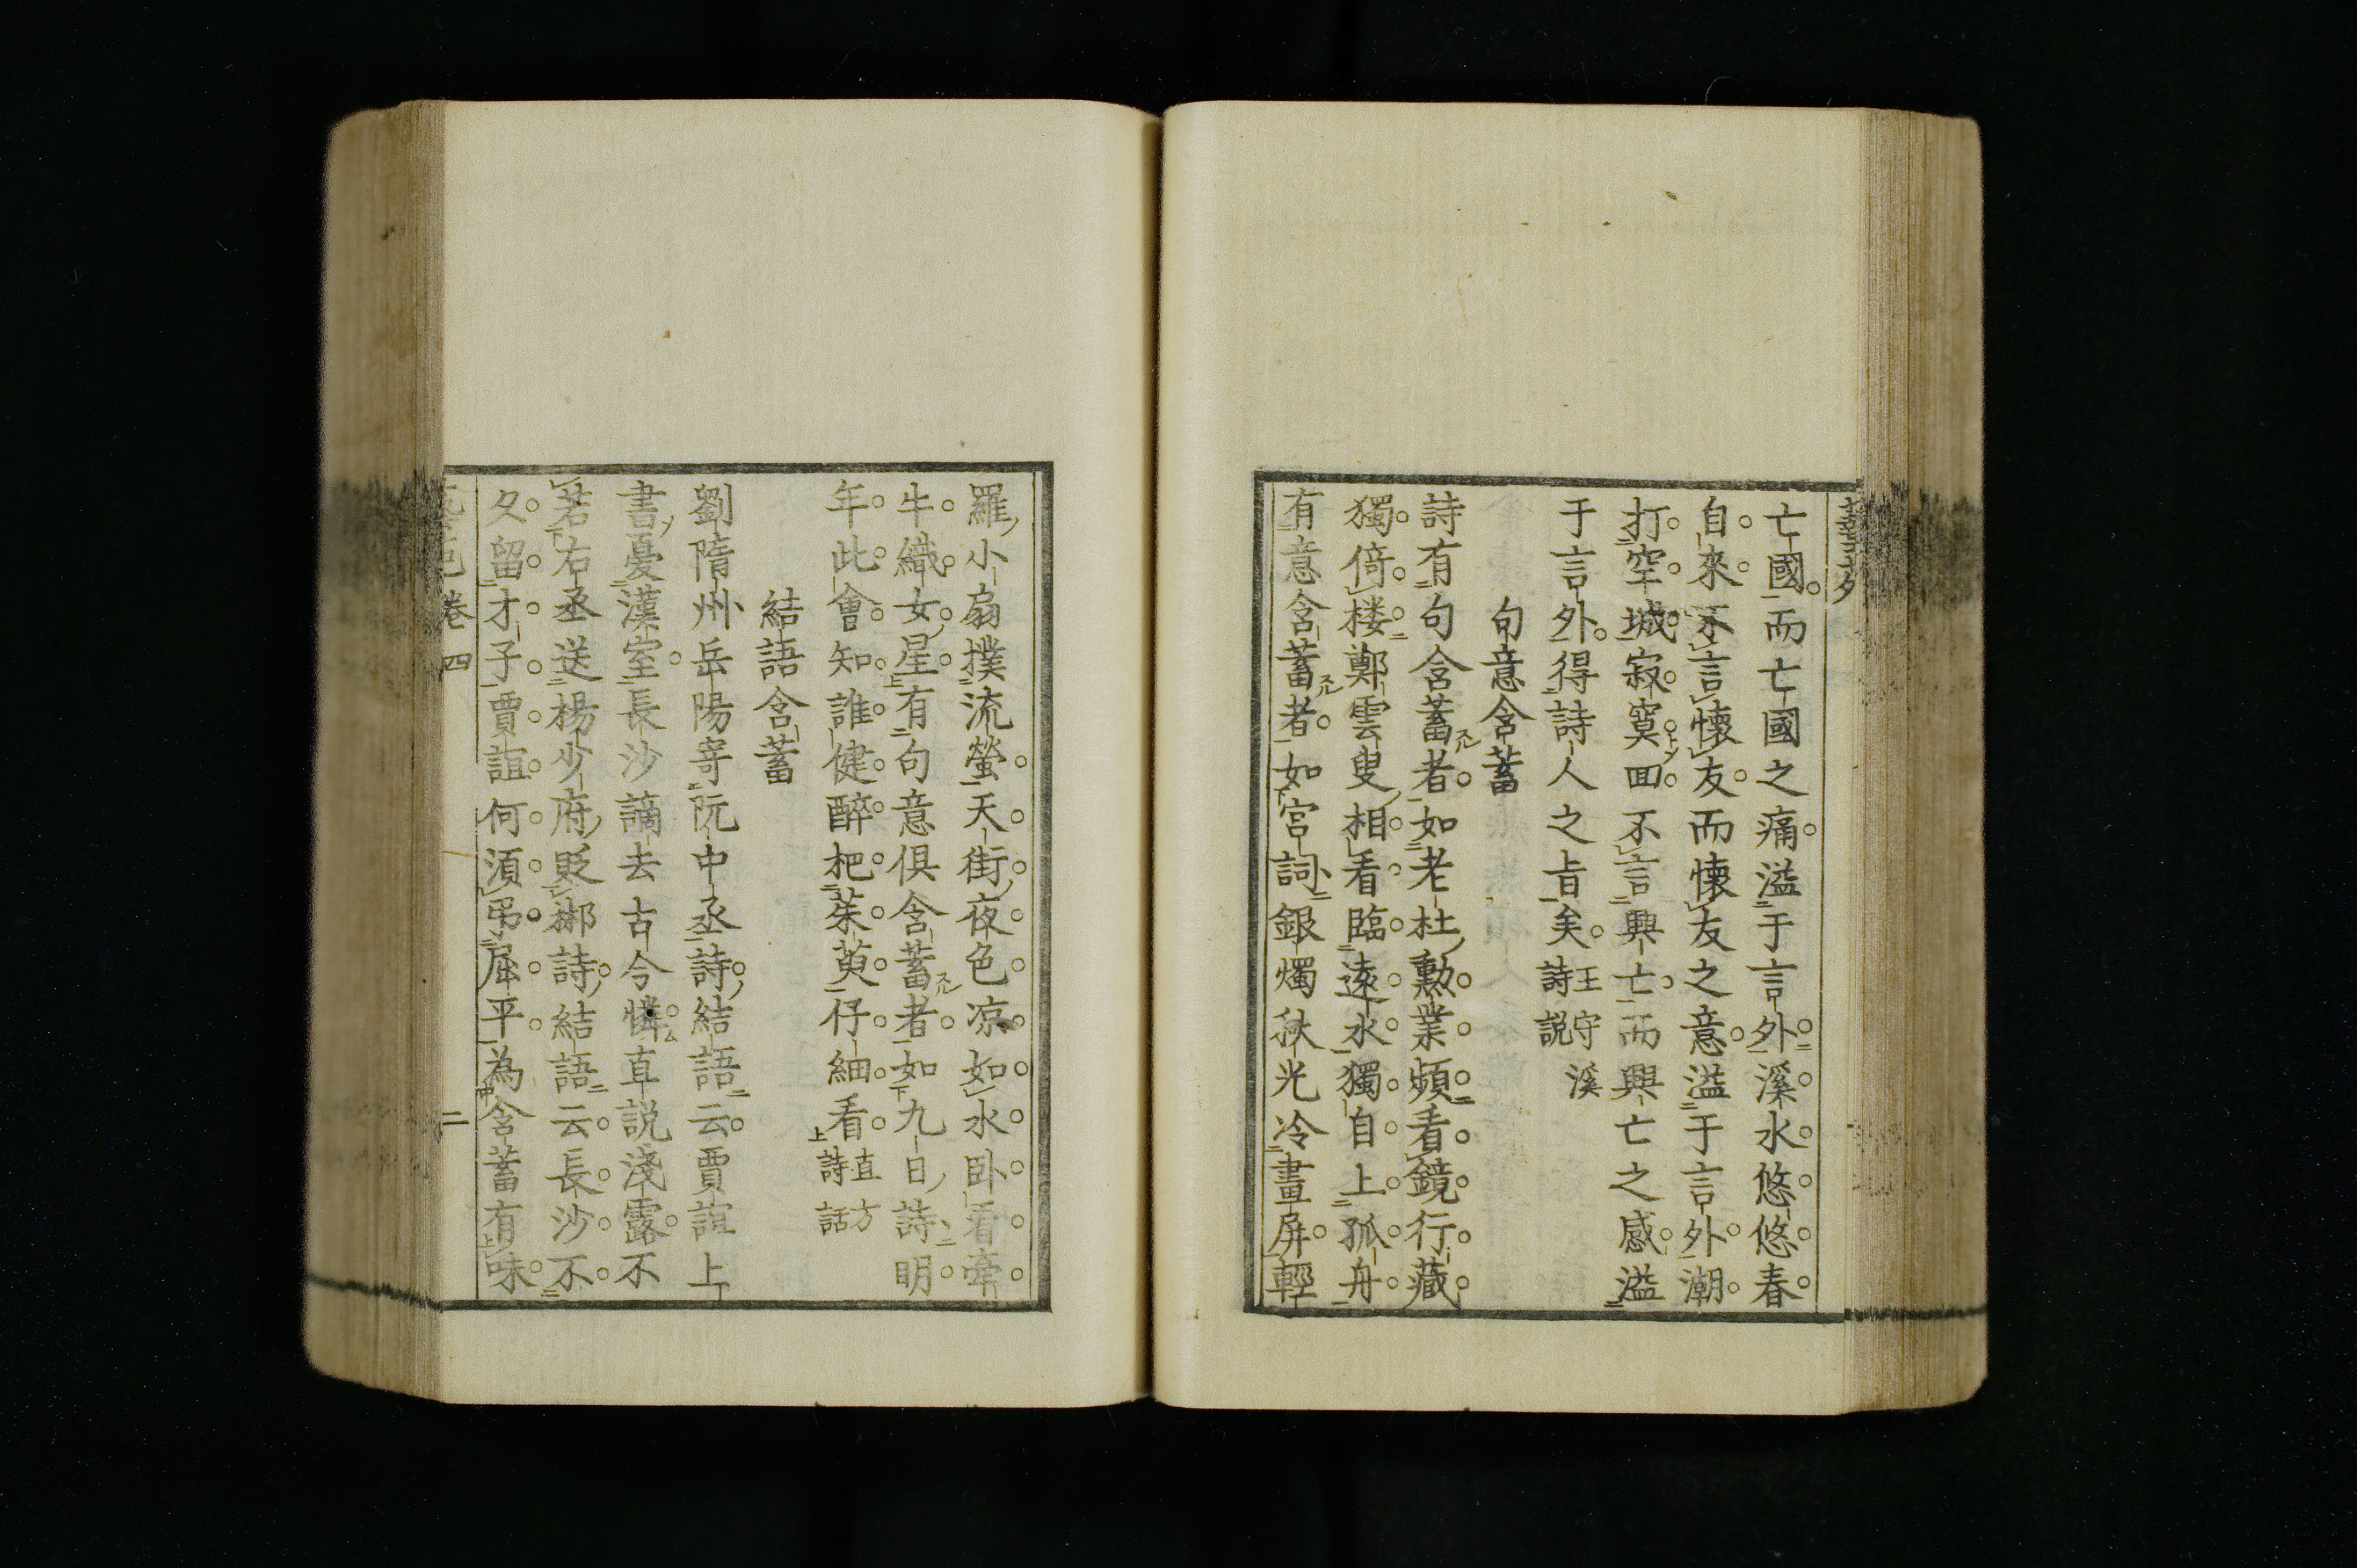 亡國而亡國之痛溢于言外溪水悠悠春
自來不言懷友而懷友之意溢于言外潮
打空城寂寞回不言興亡而興亡之感溢
于言外得詩人之旨矣王守溪詩説
句意含蓄
詩有句含蓄者如老杜勲業頻看鏡行藏
獨倚楼鄭雲叟相看臨遠水獨自上孤舟
有意含蓄者如宮詞銀燭秋光冷畫屏輕
羅小扇撲流螢天街夜色凉如水卧看牽
牛織女星有句意俱含蓄者如九日詩明
年此會知誰健醉把茱萸仔細看直方詩話
結語含蓄
劉隋州岳陽寄阮中丞詩結語云賈誼上
書憂漢室長沙謫去古今憐直説淺露不
若右丞送楊少府貶郴詩結語云長沙不
久留才子賈誼何須弔屈平為含蓄有味
卷四
二